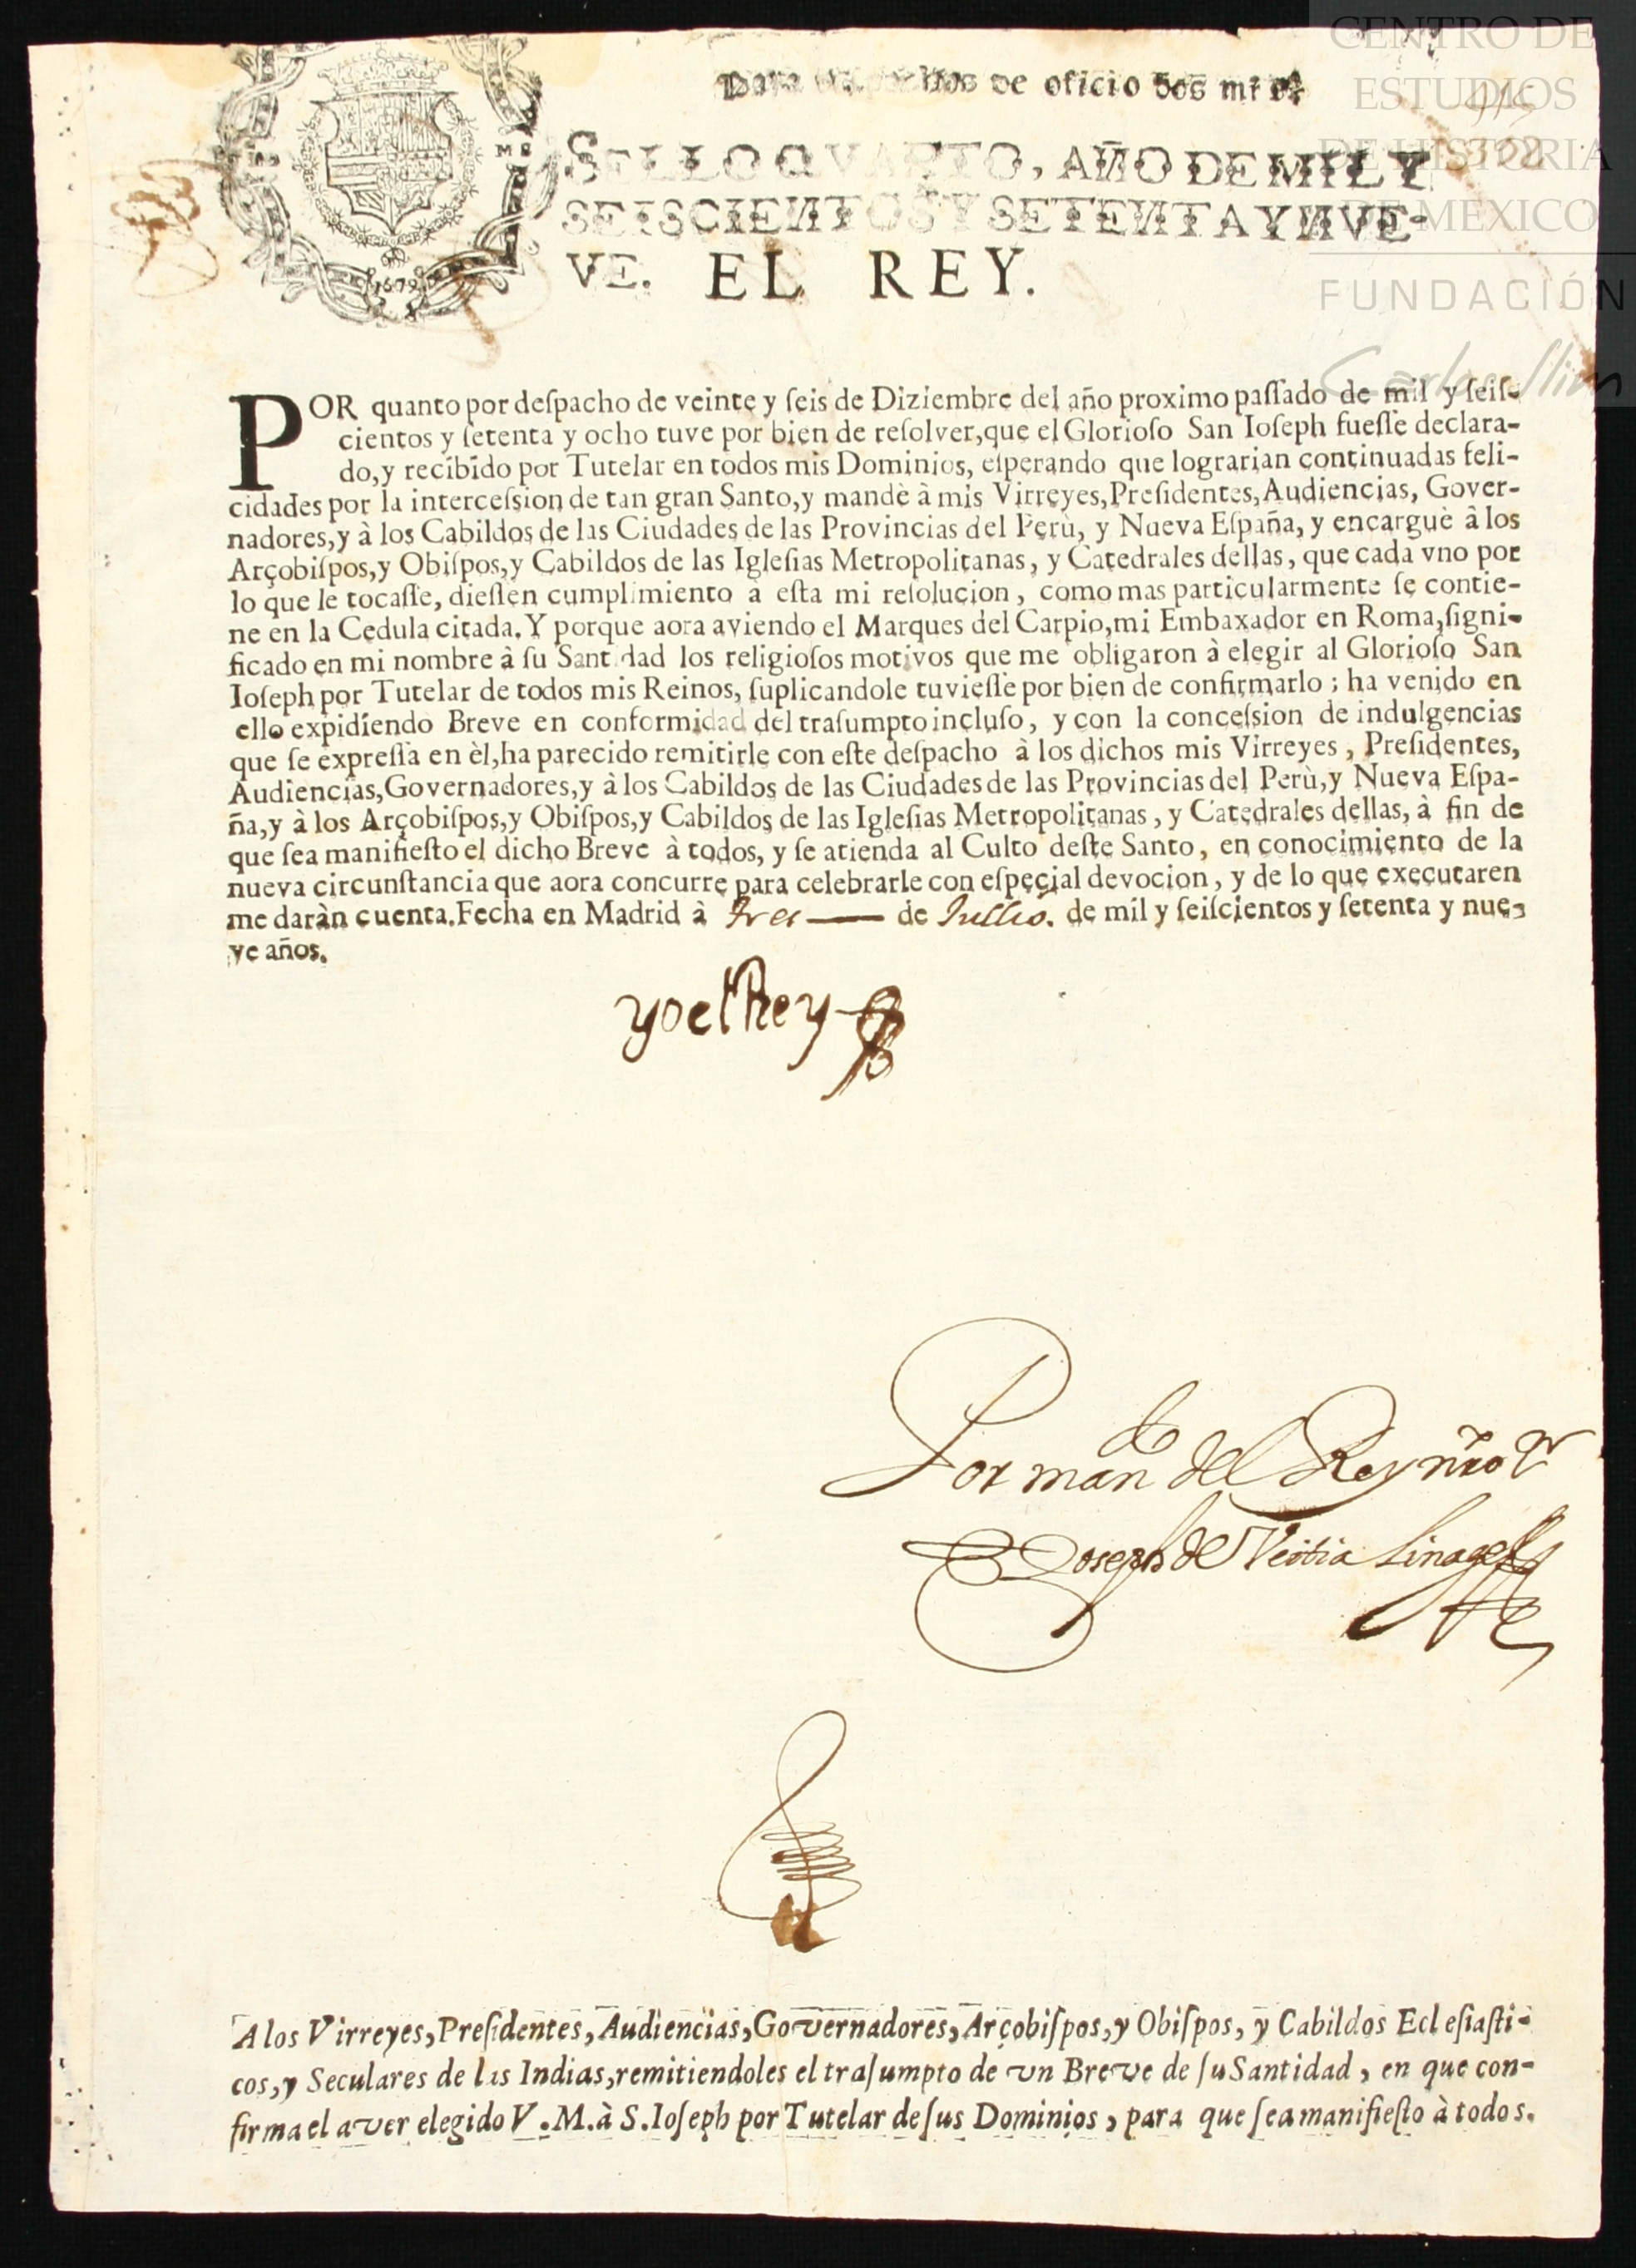 de oficio dos mrs
CENTRO DE
ESTUDIOS
DE HISTORIA
DE MEXICO
FUNDACIÓN
Carlos Slim
SELLO QVARTO, AÑO DE MIL Y
SEISCIENTOS Y SETENTA Y NVE-
VE. EL REY.
1679
POR quanto por deſpacho de veinte y ſeis de Diziembre del año proximo paſſado de mil y ſeiſ-
cientos y ſetenta y ocho tuve por bien de reſolver, que el Glorioſo San Ioſeph fueſſe declara-
do, y recibido por Tutelar en todos mis Dominios, eſperando que lograrian continuadas feli-
cidades por la interceſsion de tan gran Santo, y mandè à mis Virreyes, Preſidentes, Audiencias, Gover-
nadores, y à los Cabildos de las Ciudades de las Provincias del Perù, y Nueva Eſpaña, y encarguè à los
Arçobiſpos, y Obiſpos, y Cabildos de las Igleſias Metropolitanas, y Catedrales dellas, que cada vno por
lo que le tocaſſe, dieſſen cumplimiento a eſta mi reſolucion, como mas particularmente ſe contie-
ne en la Cedula citada. Y porque aora aviendo el Marques del Carpio, mi Embaxador en Roma, ſigni-
ficado en mi nombre à ſu Santidad los religioſos motivos que me obligaron à elegir al Glorioſo San
Ioſeph por Tutelar de todos mis Reinos, ſuplicandole tuvieſſe por bien de confirmarlo; ha venido en
ello expidiendo Breve en conformidad del traſumpto incluſo, y con la conceſsion de indulgencias
que ſe expreſſa en èl, ha parecido remitirle con eſte deſpacho à los dichos mis Virreyes, Preſidentes,
Audiencias, Governadores, y à los Cabildos de las Ciudades de las Provincias del Perù, y Nueva Eſpa-
ña, y à los Arçobiſpos, y Obiſpos, y Cabildos de las Igleſias Metropolitanas, y Catedrales dellas, à fin de
que ſea manifieſto el dicho Breve à todos, y ſe atienda al Culto deſte Santo, en conocimiento de la
nueva circunſtancia que aora concurre para celebrarle con eſpecial devocion, y de lo que executaren
me daràn cuenta. Fecha en Madrid à tres de Jullio. de mil y ſeiſcientos y ſetenta y nue-
ve años.
yo el Rey
Por mando del Rey nro Sr
Joseph de Veitia Linage
A los Virreyes, Preſidentes, Audiencias, Governadores, Arçobiſpos, y Obiſpos, y Cabildos Ecleſiaſti-
cos, y Seculares de las Indias, remitiendoles el traſumpto de vn Breve de ſu Santidad, en que con-
firma el aver elegido V. M. à S. Ioſeph por Tutelar de ſus Dominios, para que ſea manifieſto à todos.